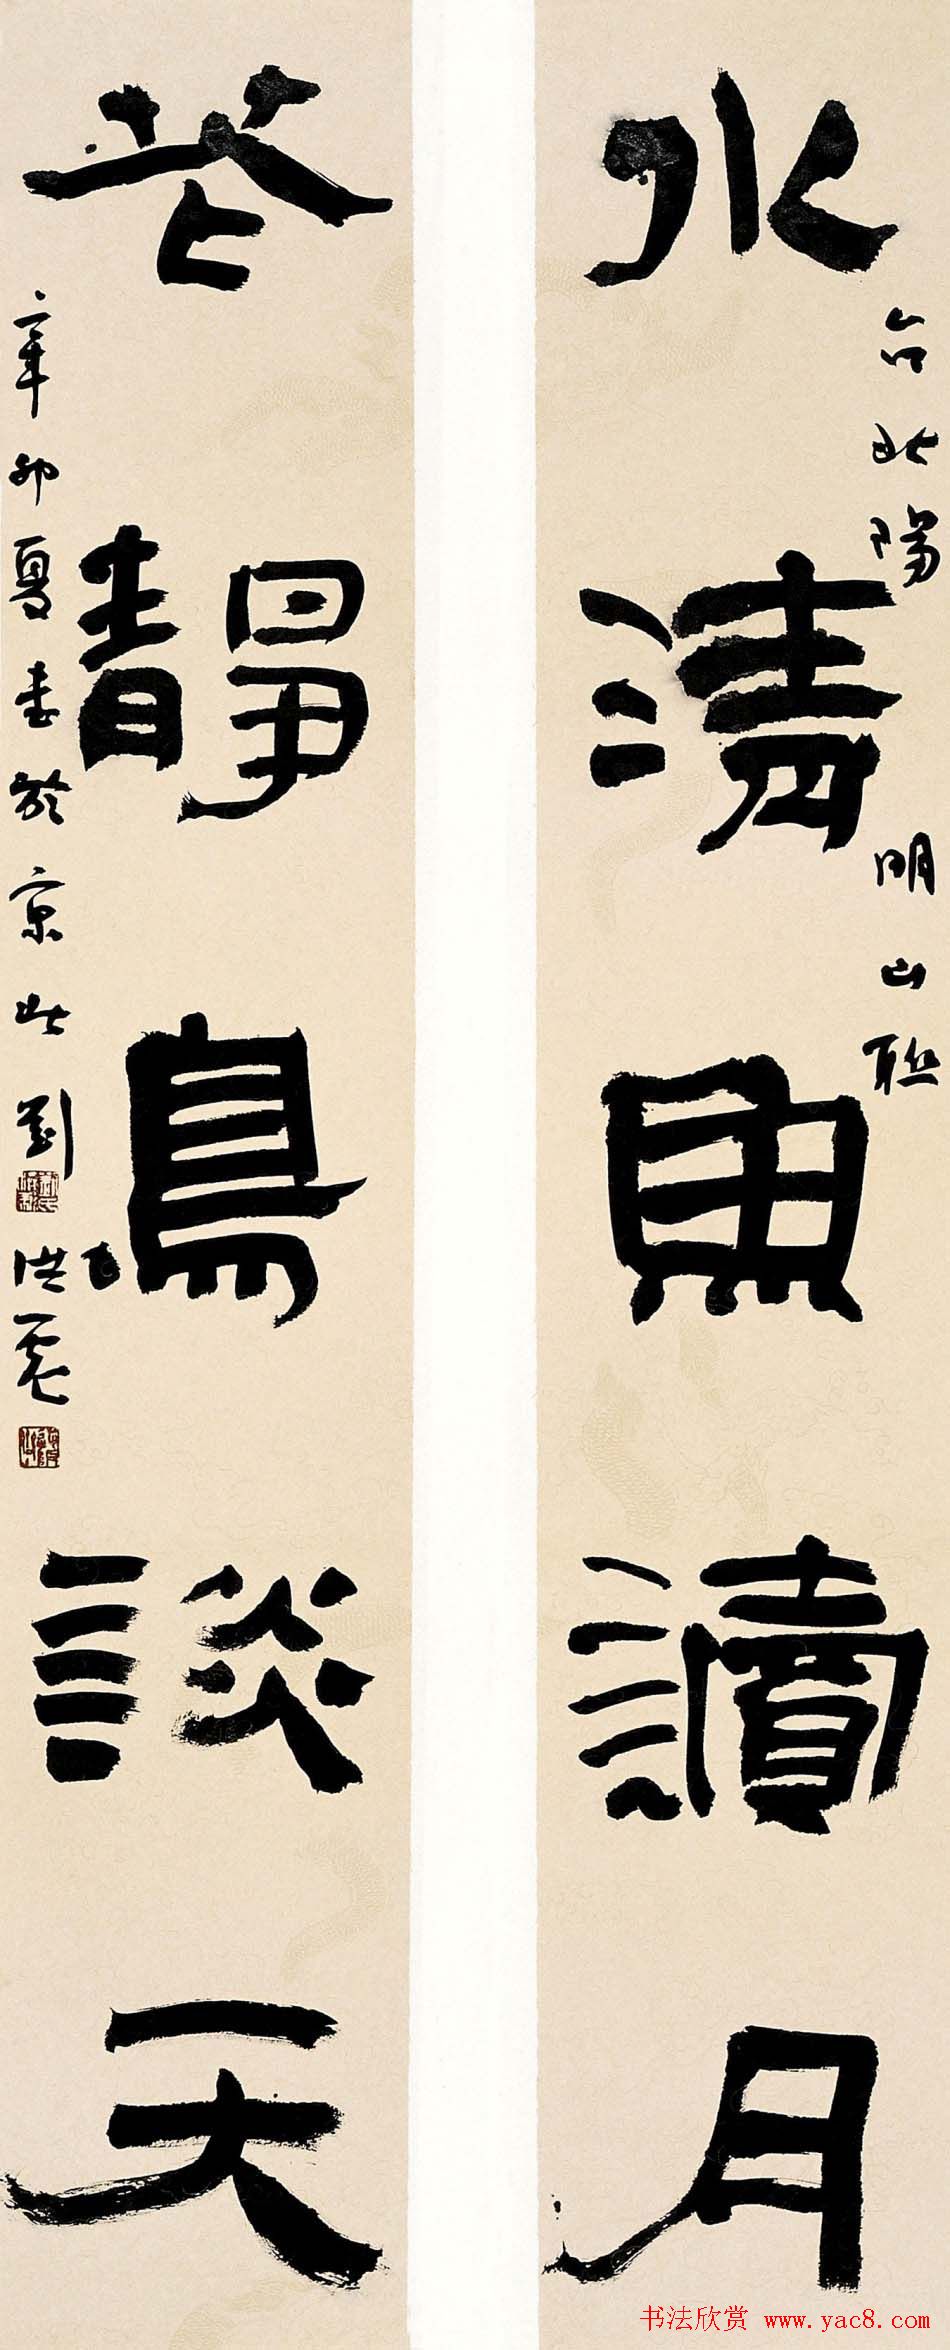 水清魚讀月
台北陽明山聯
花靜鳥談天
辛卯夏書於京北劉洪彪
书法欣赏 www.yac8.com